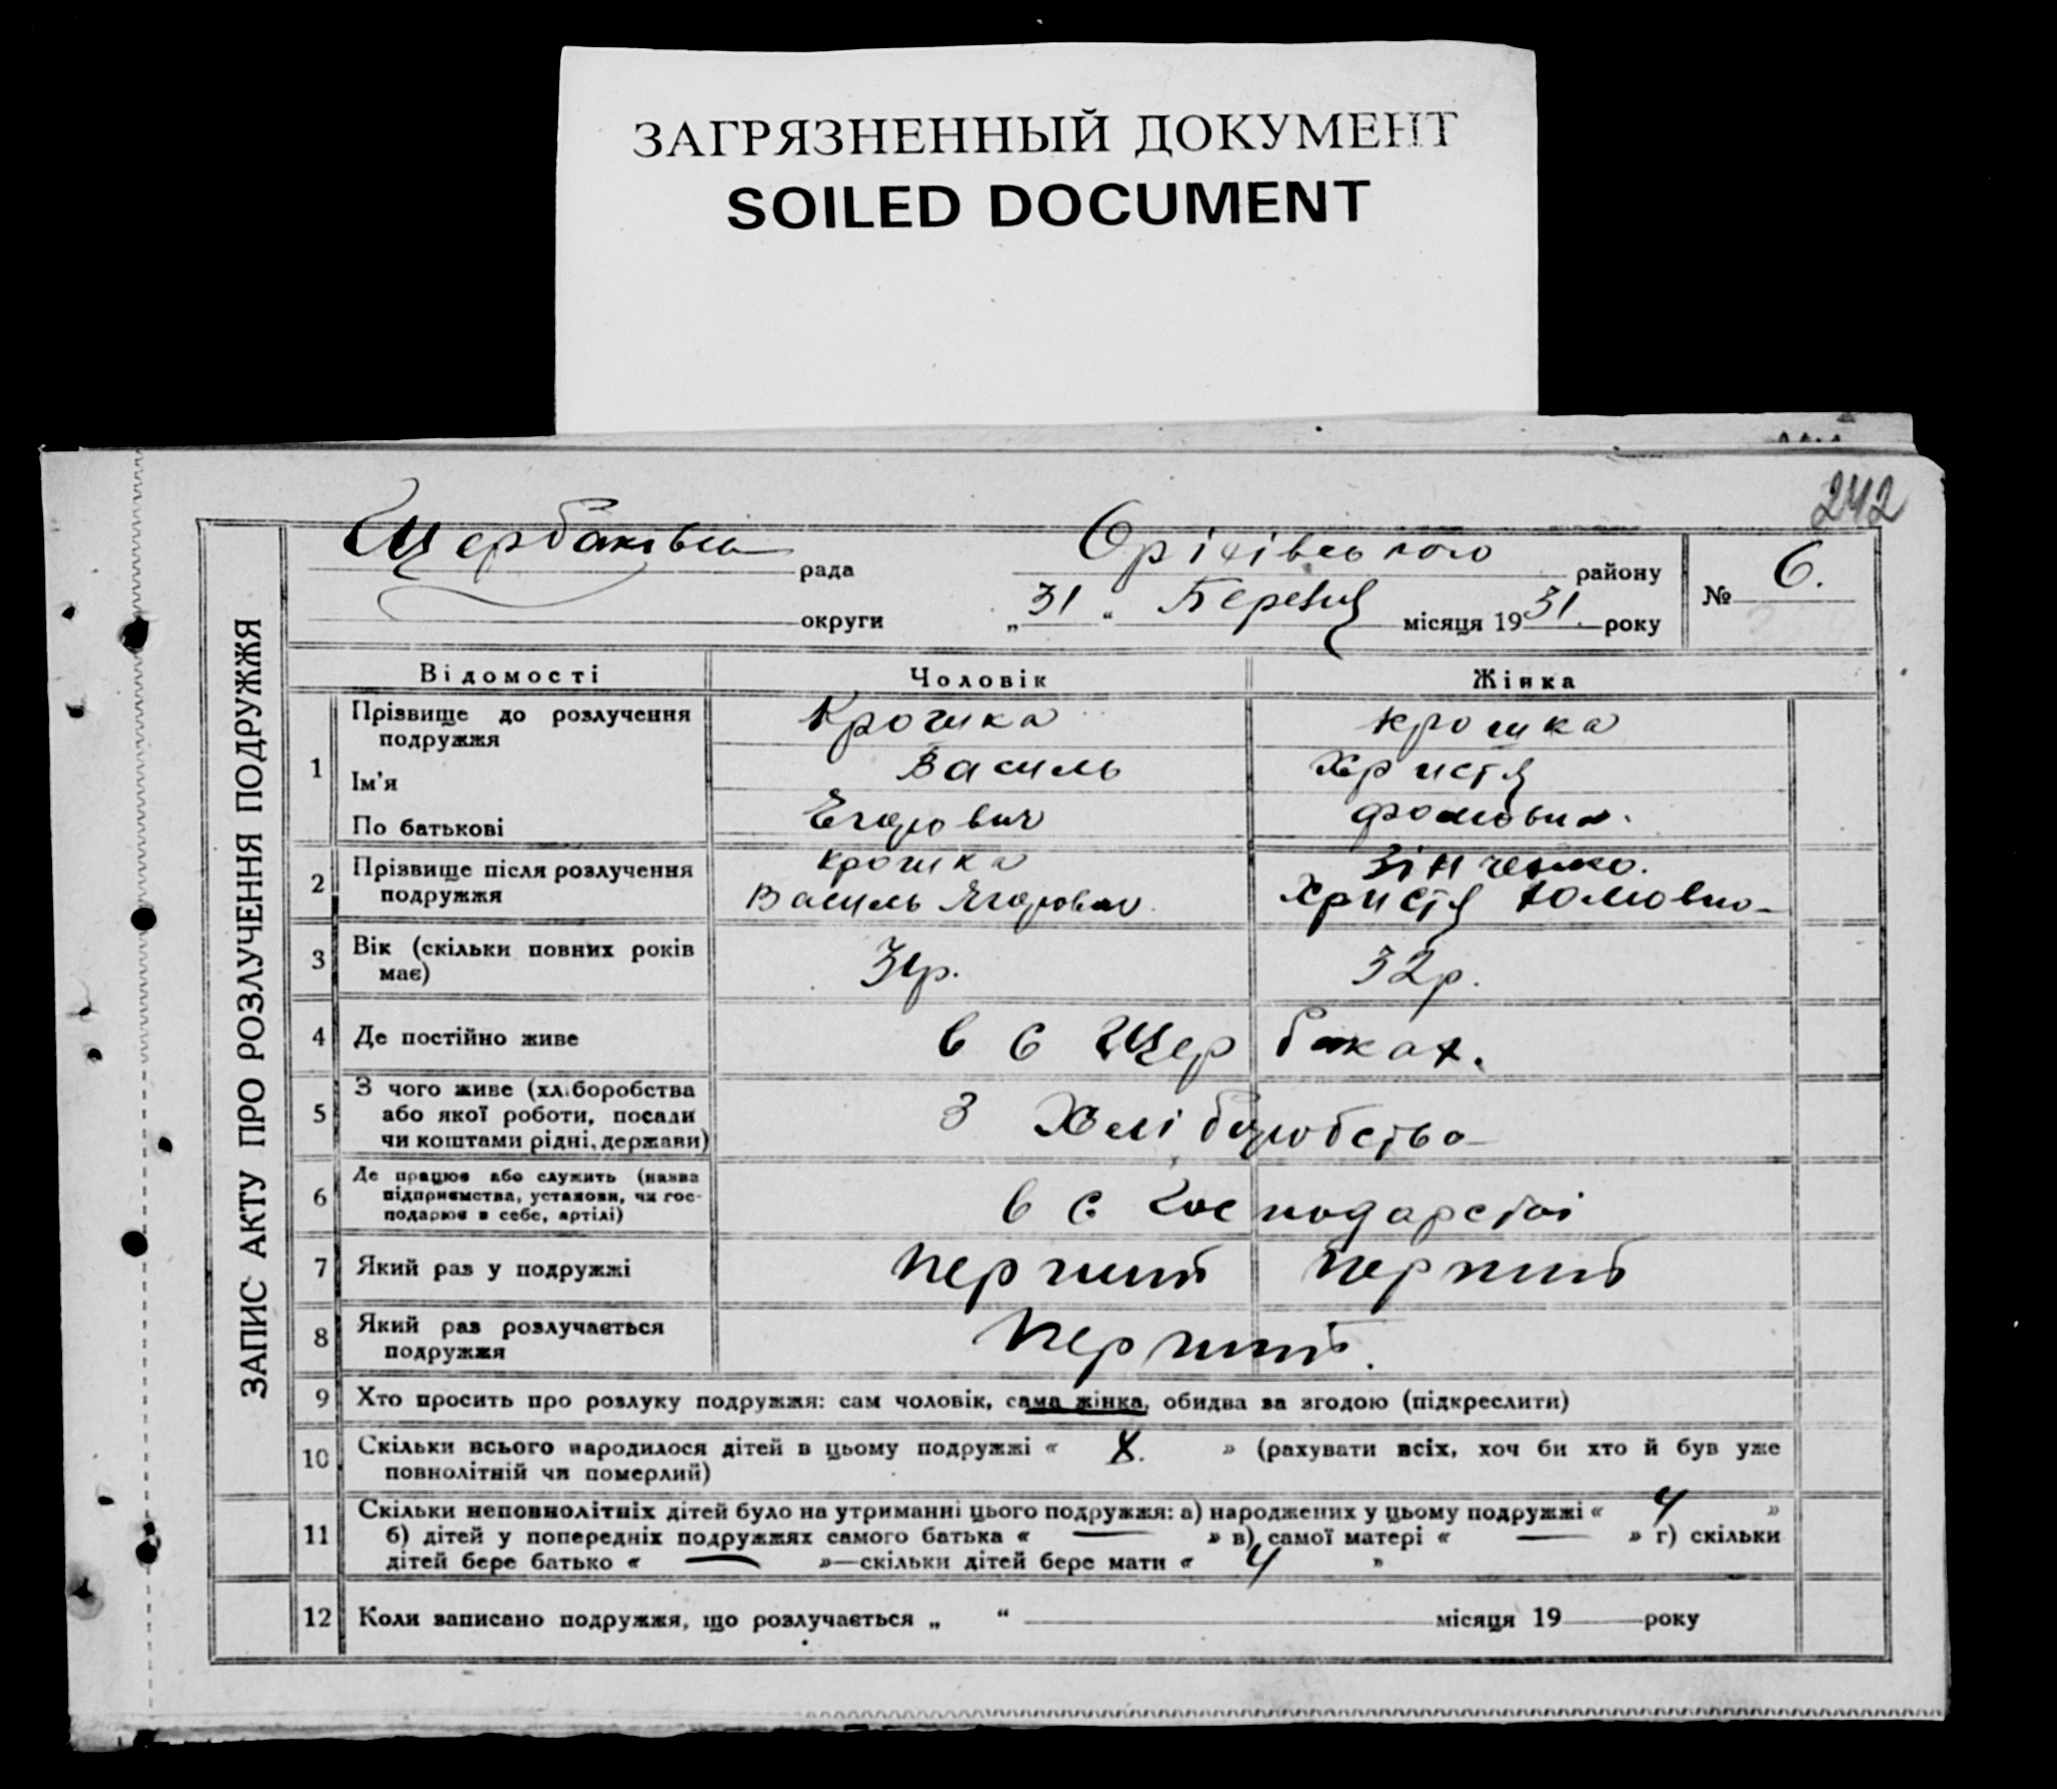 ЗАГРЯЗНЕННЫЙ ДОКУМЕНТ
SOILED DOCUMENT
242
ЗАПИС АКТУ ПРО РОЗЛУЧЕННЯ ПОДРУЖЖЯ
Щербаківська рада Оріхівського району № 6.
округи „ 31 “ Березня місяця 1931. року
Відомості Чоловік Жінка
1 Прізвище до розлучення подружжя Крошка Крошка
Ім'я Василь Христя
По батькові Єгорович Фомовна.
2 Прізвище після розлучення Крошка Зінченко.
подружжя Василь Єгорович Христя
3 Вік (скільки повних років 31р. 32р.
має)
4 Де постійно живе в с Щербаках.
5 З чого живе (хліборобства
або якої роботи, посади З Хліборобства
чи коштами рідні, держави)
6 Де працює або служить (назва
підприємства, установи, чи гос- в с Господарстві
подарює в себе, артілі)
7 Який раз у подружжі Перший Перший
8 Який раз розлучається Перший.
подружжя
9 Хто просить про розлуку подружжя: сам чоловік, сама жінка, обидва за згодою (підкреслити)
10 Скільки всього народилося дітей в цьому подружжі « » (рахувати всіх, хоч би хто й був уже
повнолітній чи померлий)
11 Скільки неповнолітніх дітей було на утриманні цього подружжя: а) народжених у цьому подружжі « 4 »
б) дітей у попередніх подружжях самого батька « — » в) самої матері « — » г) скільки
дітей бере батько « — »—скільки дітей бере мати « 4 »
12 Коли записано подружжя, що розлучається „ “ місяця 19 року